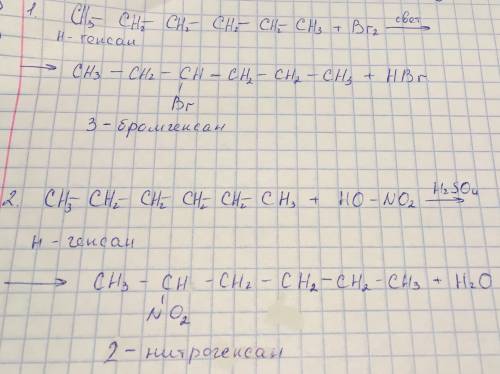 1. CH3 – CH2 – CH2 – CH2 – CH2 – CH3 + Br2 свет →
н-гексан
→ CH3 – CH2 – CH – CH2 – CH2 – CH3 + HBr
Br
3-бромгексан
2. CH3 – CH2 – CH2 – CH2 – CH2 – CH3 + HO – NO2 H2SO4 →
н-гексан
→ CH3 – CH – CH2 – CH2 – CH2 – CH3 + H2O
NO2
2-нитрогексан